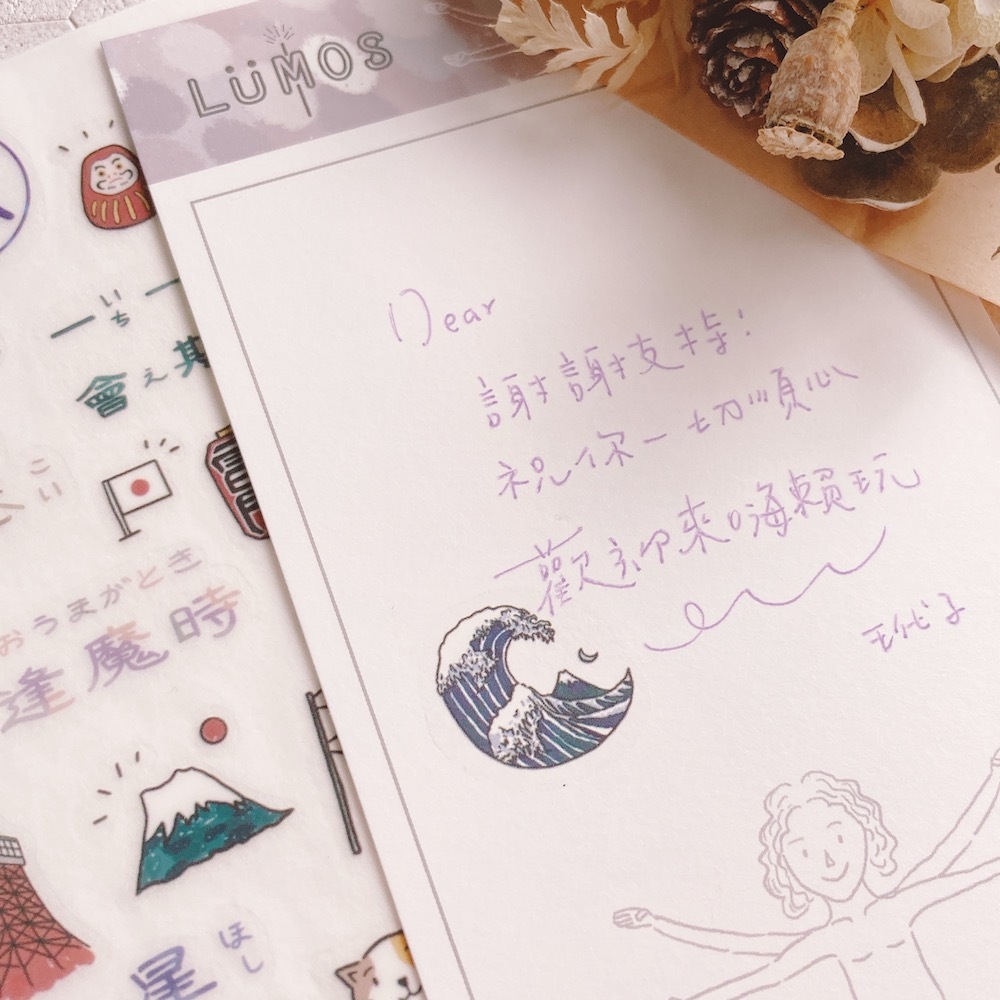 LÜMOS
Dear
謝謝支持!
祝你一切順心
歡迎來嗨賴玩
玳子
いち
一 一
會え期
こい
おうまがとき
逢魔時
ほし
星